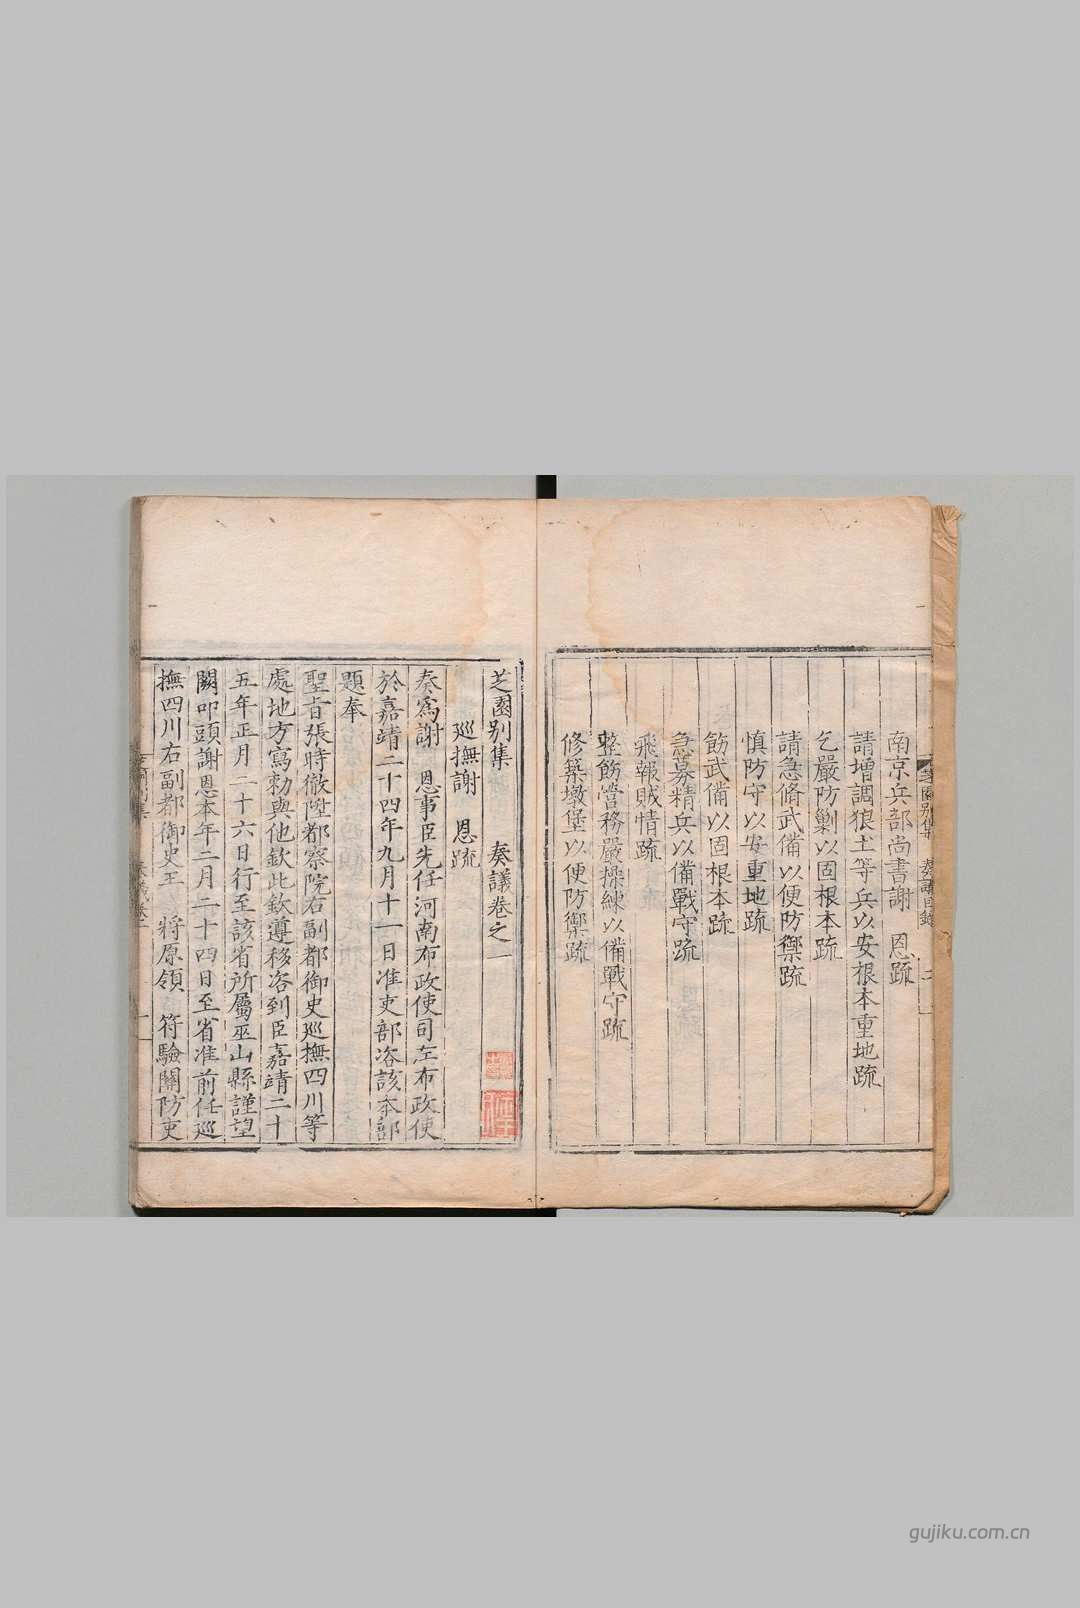 南京兵部尚書謝 恩疏
請增調狼土等兵以安根本重地疏
乞嚴防剿以固根本疏
請急脩武備以便防禦疏
慎防守以安重地疏
飭武備以固根本疏
急募精兵以備戰守疏
飛報賊情疏
整飭營務嚴操練以備戰守疏
修築墩堡以便防禦疏
芝園别集 奏議卷之一
巡撫謝 恩疏
奏爲謝 恩事臣先任河南布政使司左布政使
於嘉靖二十四年九月十一日准吏部咨該本部
題奉
聖旨張時徹陞都察院右副都御史巡撫四川等
處地方寫勑與他欽此欽遵移咨到臣嘉靖二十
五年正月二十六日行至該省所屬巫山縣謹望
闕叩頭謝恩本年二月二十四日至省准前任巡
撫四川右副都御史王 將原領 符驗關防吏
gujiku.com.cn